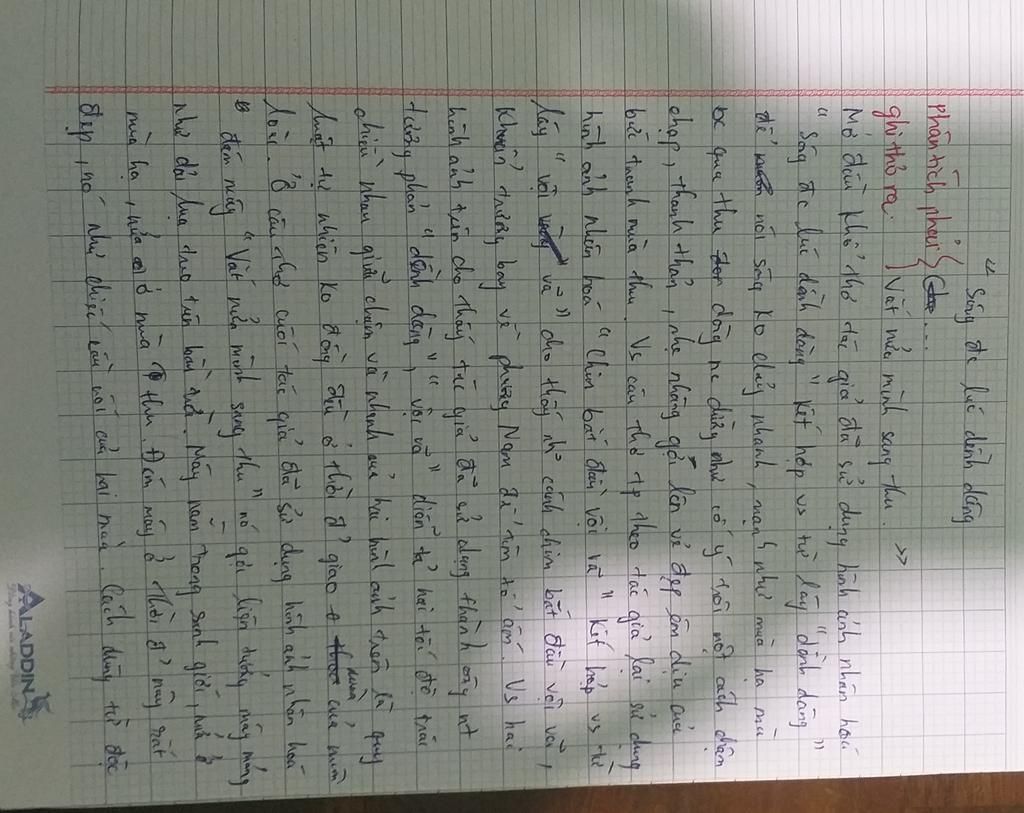 “ Sông đc lúc dềnh dàng
phân tích phải { ....
ghi thơ ra. { Vắt nửa mình sang thu. ”
Mở đầu khổ thơ tác giả đã sử dụng hình ảnh nhân hoá
“ Sông đc lúc dềnh dàng ” kết hợp vs từ láy “ dềnh dàng ”
để nói sông ko chảy nhanh, mạnh như mùa hạ mà
qua thu dòng nc dường như cố ý trôi một cách chậm
chạp, thanh thản, nhẹ nhàng gợi lên vẻ đẹp êm dịu của
bức tranh mùa thu. Vs câu thơ tp theo tác giả lại sử dụng
hình ảnh nhân hoá “ Chim bắt đầu vội vã ” kết hợp vs từ
láy “ vội vã ” cho thấy cánh chim bắt đầu vội vã,
khẩn trương bay về phương Nam để tìm tổ ấm. Vs hai
hình ảnh trên cho thấy tác giả đã sử dụng thành công nt
tương phản “ dềnh dàng ”, “ vội vã ” diễn tả hai tốc độ trái
chiều nhau giữa chậm và nhanh của hai hình ảnh trên là quy
luật tự nhiên ko đồng đều ở thời đ' giao mùa của muôn
loài. Ở câu thơ cuối tác giả đã sử dụng hình ảnh nhân hoá
đám mây “ Vắt nửa mình sang thu ” nó gợi liên tưởng mây mỏng
như dải lụa treo trên bầu trời. Mây nằm trong ranh giới, nửa ở
mùa hạ, nửa ở mùa thu. Đám mây ở thời đ' này rất
đẹp, nó như chiếc cầu nối của hai mùa. Cách dùng từ độc
ALADDIN